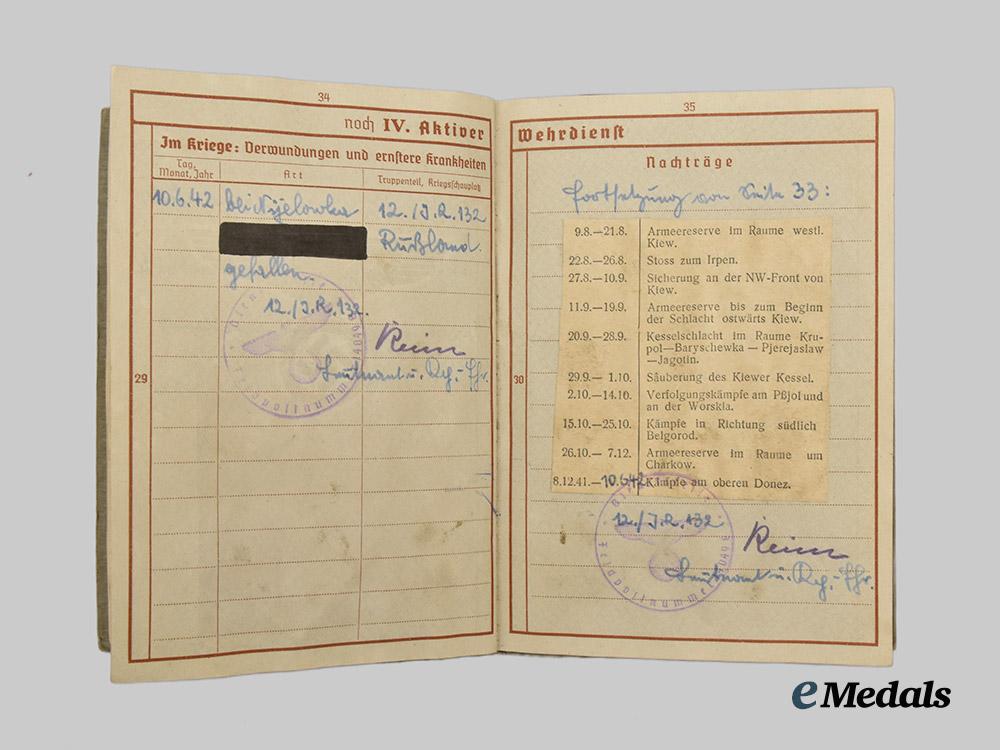 34
noch IV. Aktiver
Im Kriege: Verwundungen und ernstere Krankheiten
Tag, Monat, Jahr
Art
Truppenteil, Kriegsschauplatz
10.6.42 Bei Nijelowka 12./J.R.132
Rußland
gefallen.
12./J.R.132.
Reim
Leutnant u. Kp.-Fhr.
29
35
Wehrdienst
Nachträge
Fortsetzung von Seite 33:
9.8.—21.8. Armeereserve im Raume westl.
Kiew.
22.8.—26.8. Stoss zum Irpen.
27.8.—10.9. Sicherung an der NW-Front von
Kiew.
11.9.—19.9. Armeereserve bis zum Beginn
der Schlacht ostwärts Kiew.
20.9.—28.9. Kesselschlacht im Raume Kru-
pol—Baryschewka — Pjerejaslaw
—Jagotin.
29.9.— 1.10. Säuberung des Kiewer Kessel.
2.10.—14.10. Verfolgungskämpfe am Pßjol und
an der Worskla.
15.10.—25.10. Kämpfe in Richtung südlich
Belgorod.
26.10.— 7.12. Armeereserve im Raume um
Charkow.
8.12.41.—10.6.42 Kämpfe am oberen Donez.
30
12./J.R.132
Reim
Leutnant u. Kp.-Fhr.
Feldpostnummer
eMedals